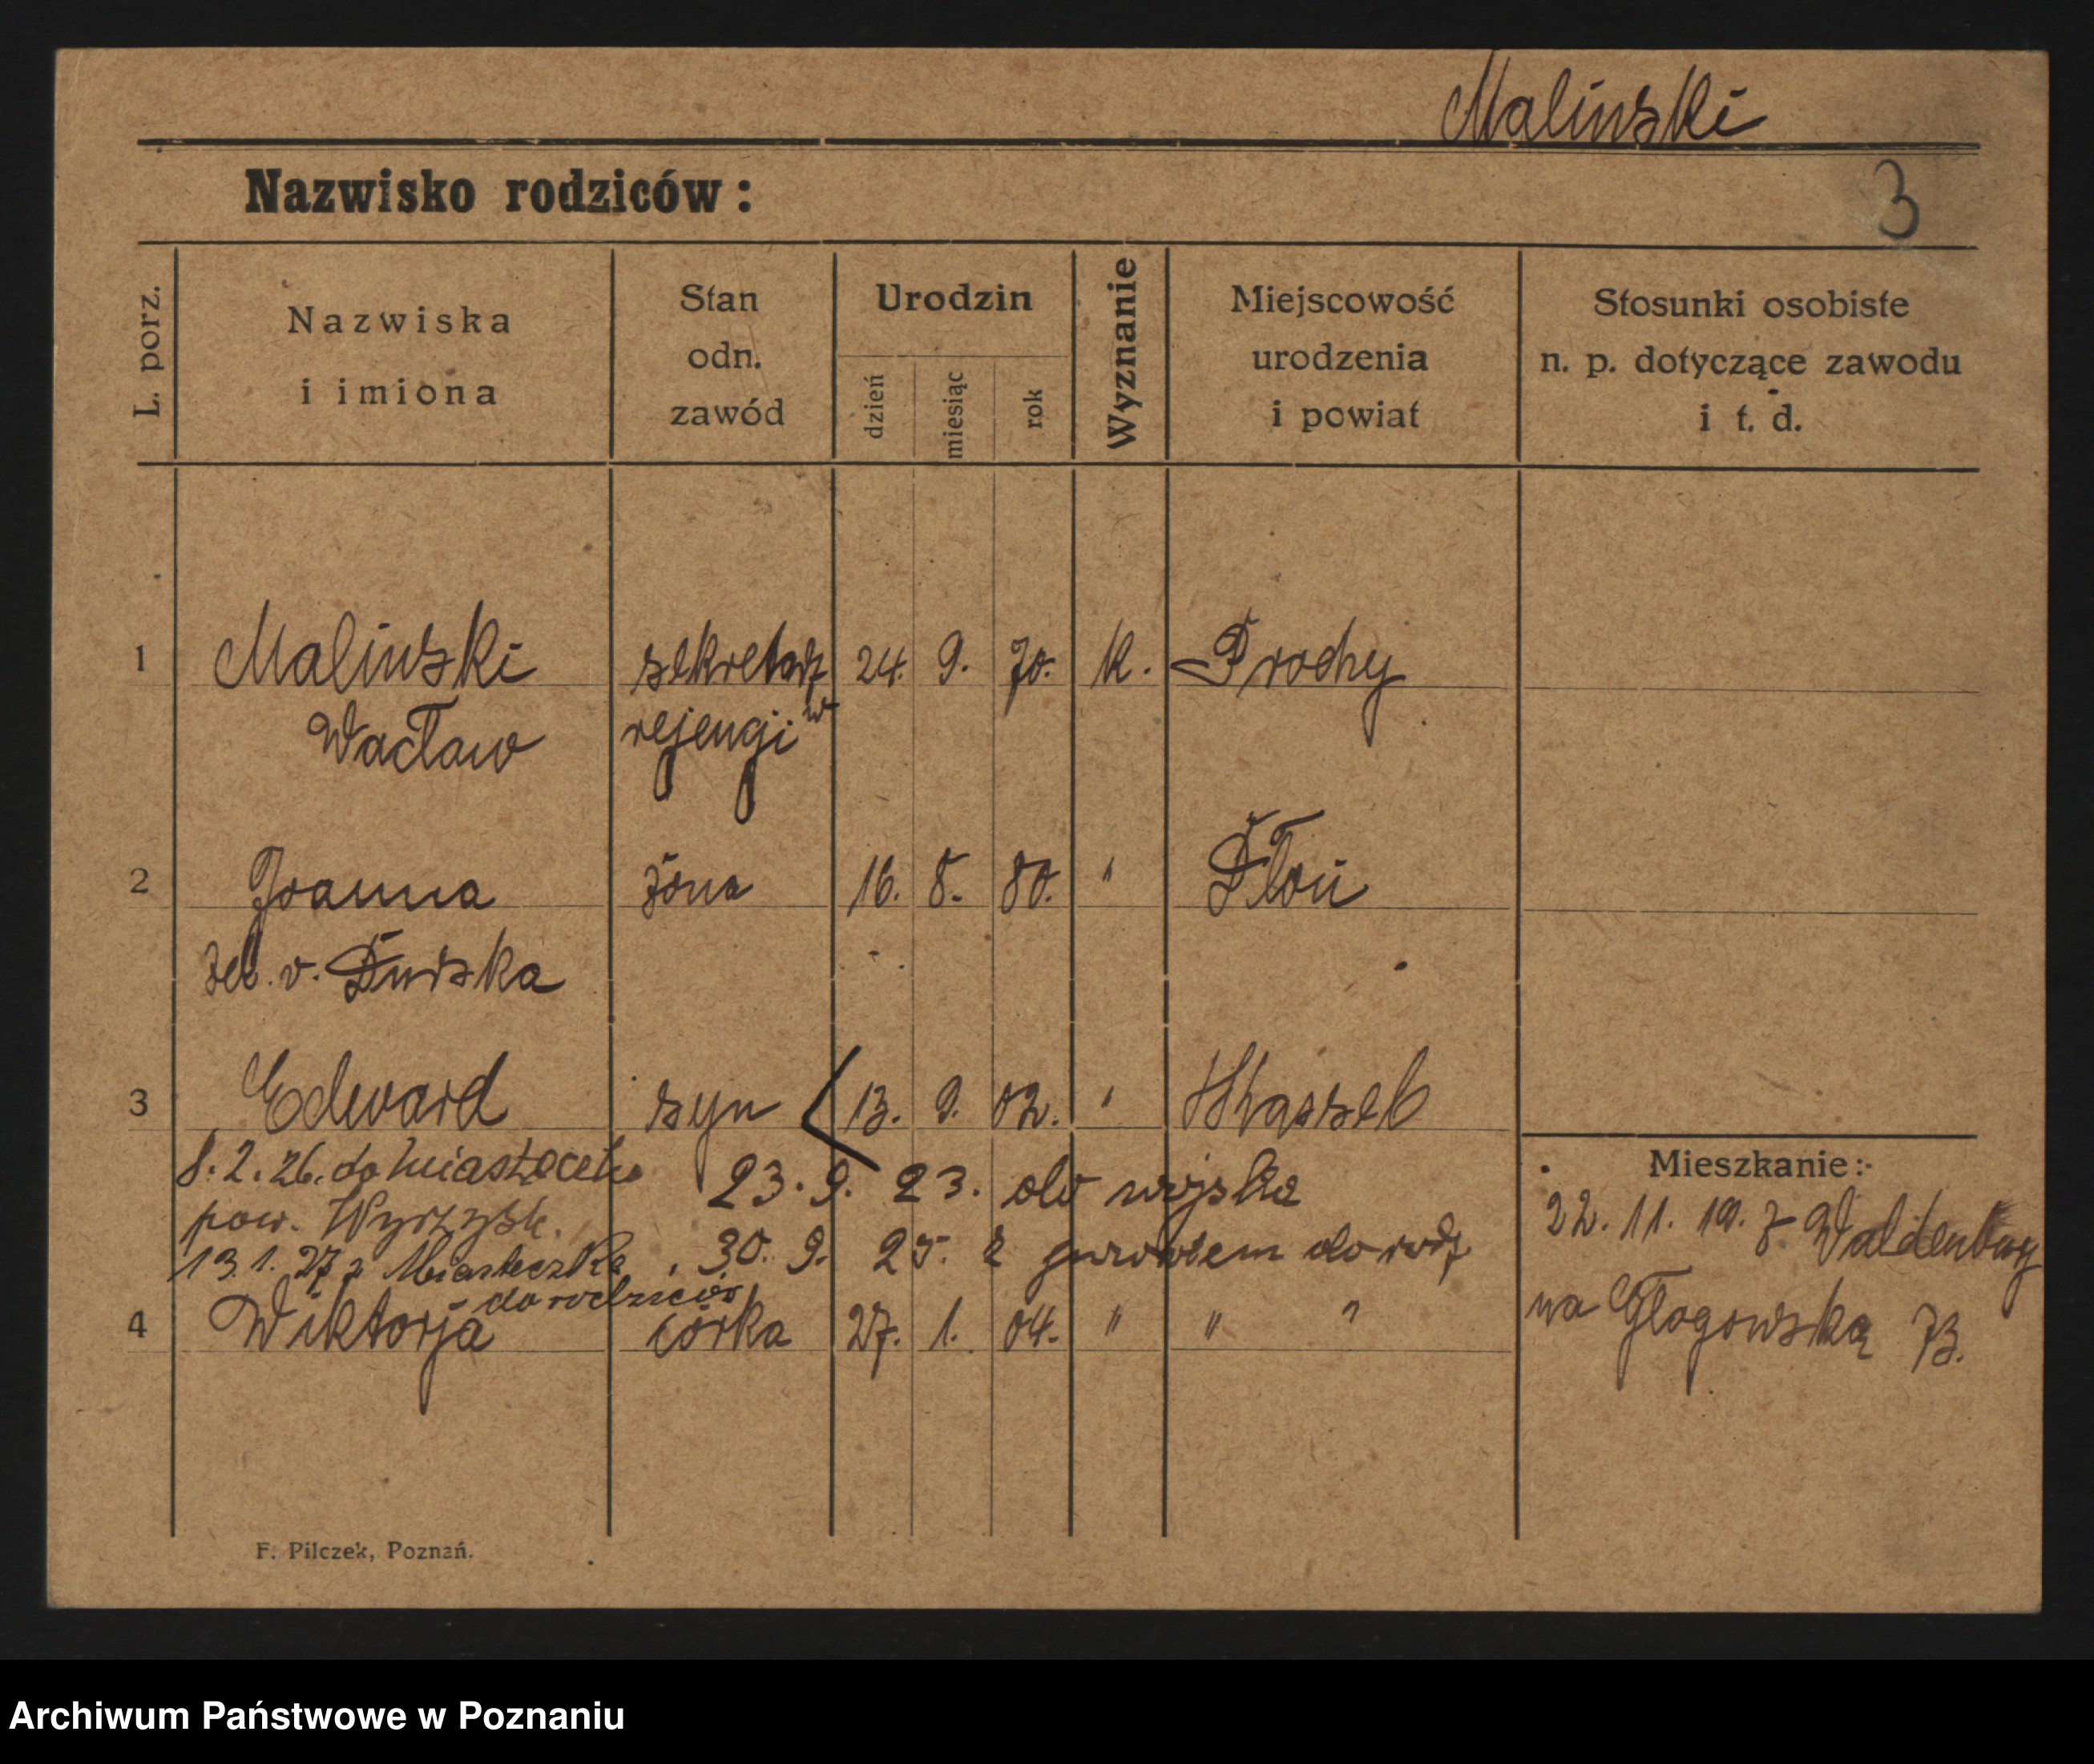 Malinski
Nazwisko rodziców:
3
L. porz.
Nazwiska
i imiona
Stan
odn.
zawód
Urodzin
dzień
miesiąc
rok
Wyznanie
Miejscowość
urodzenia
i powiat
Stosunki osobiste
n. p. dotyczące zawodu
i t. d.
1 Malinski sekretarz 24. 9. 70. K. Prochy
Wacław rejencji
2 Joanna żona 16. 8. 80. "
3 Edward syn 13. 9. 02. "
8. 2. 26. do
pow. Wyrzysk.
23. 9. 23. do wojska
13. 1. 27 z Miasteczka
do rodziców
30. 9. 25. z powrotem do rodz
4 Wiktorja córka 27. 1. 04. " " "
Mieszkanie:
22. 11. 19. z Waldenburg
na Głogowską 73.
F. Pilczek, Poznań.
Archiwum Państwowe w Poznaniu